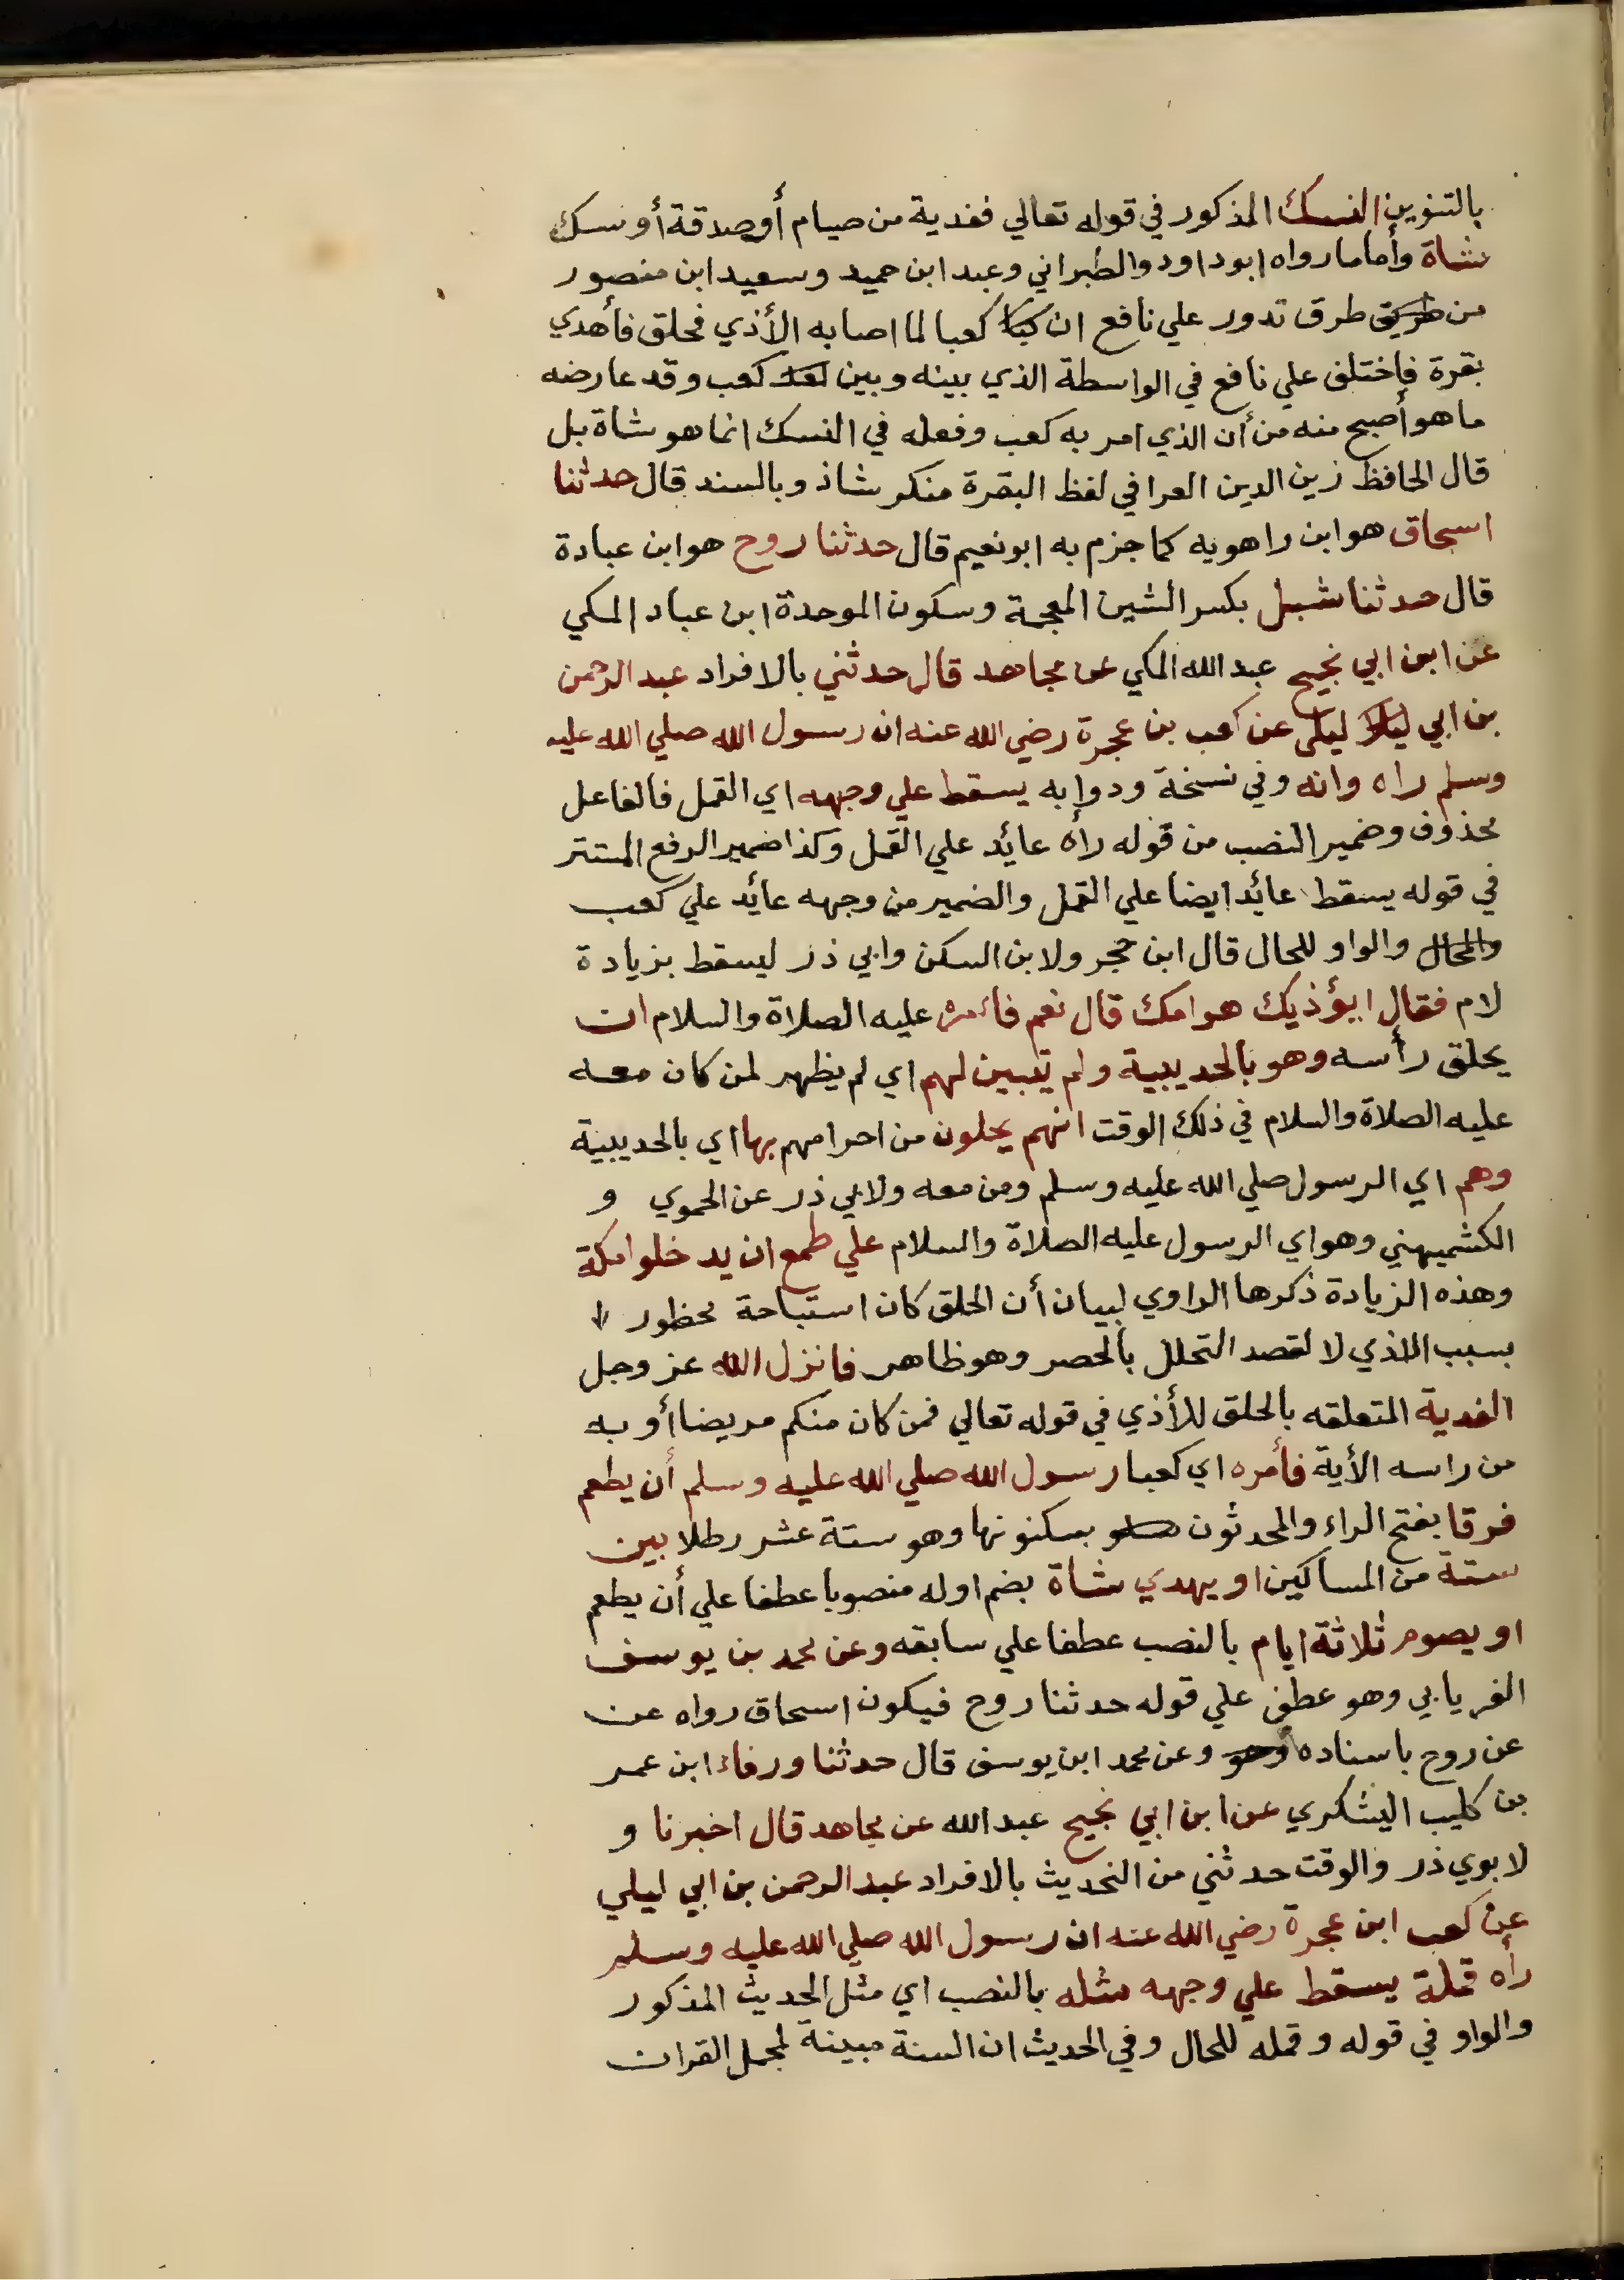 بالتنوين النسك المذكور في قوله تعالي ففدية من صيام أو صدقة أو نسك
شاة وأما ما رواه ابو داود والطبراني وعبد ابن حميد وسعيد ابن منصور
من طريق طرق تدور علي نافع ان كعبا لما اصابه الأذي فحلق فأهدي
بقرة فاختلف علي نافع في الواسطة الذي بينه وبين كعب وقد عارضه
ما هو أصح منه من أن الذي امر به كعب وفعله في النسك انما هو شاة بل
قال الحافظ زين الدين العراقي لفظ البقرة منكر شاذ وبالسند قال حدثنا
اسحاق هو ابن راهويه كما جزم به ابو نعيم قال حدثنا روح هو ابن عبادة
قال حدثنا شبل بكسر الشين المعجمة وسكون الموحدة ابن عباد المكي
عن ابن ابي نجيح عبد الله المكي عن مجاهد قال حدثني بالافراد عبد الرحمن
بن ابي ليلى عن كعب بن عجرة رضي الله عنه ان رسول الله صلي الله عليه
وسلم راه وانه وفي نسخة ودوابه يسقط علي وجهه اي القمل فالفاعل
محذوف وضمير النصب من قوله رأه عائد علي القمل وكذا ضمير الرفع المستتر
في قوله يسقط عائد ايضا علي القمل والضمير من وجهه عائد علي كعب
والحال والواو للحال قال ابن حجر ولابن السكن وابي ذر ليسقط بزيادة
لام فقال ايؤذيك هوامك قال نعم فأمره عليه الصلاة والسلام ان
يحلق رأسه وهو بالحديبية ولم يتبين لهم اي لم يظهر لمن كان معه
عليه الصلاة والسلام في ذلك الوقت انهم يحلون من احرامهم بها اي بالحديبية
وهم اي الرسول صلي الله عليه وسلم ومن معه ولابي ذر عن الحموي و
الكشميهني وهو اي الرسول عليه الصلاة والسلام علي طمع ان يدخلوا مكة
وهذه الزيادة ذكرها الراوي لبيان أن الحلق كان استباحة محظور
بسبب الاذي لا لقصد التحلل بالحصر وهو ظاهر فانزل الله عز وجل
الفدية المتعلقه بالحلق للأذي في قوله تعالي فمن كان منكم مريضا أو به
من راسه الأية فأمره اي كعبا رسول الله صلي الله عليه وسلم أن يطعم
فرقا بفتح الراء والمحدثون بسكنونها وهو ستة عشر رطلا بين
ستة من المساكين او يهدي شاة بضم اوله منصوبا عطفا علي أن يطعم
او يصوم ثلاثة ايام بالنصب عطفا علي سابقه وعن محمد بن يوسف
الفريابي وهو عطف علي قوله حدثنا روح فيكون اسحاق رواه عن
عن روح باسناده وهو وعن محمد ابن يوسف قال حدثنا ورقاء ابن عمر
بن كليب اليشكري عن ابن ابي نجيح عبد الله عن مجاهد قال اخبرنا و
لابوي ذر والوقت حدثني من التحديث بالافراد عبد الرحمن بن ابي ليلي
عن كعب ابن عجرة رضي الله عنه ان رسول الله صلي الله عليه وسلم
رأه قملة يسقط علي وجهه مثله بالنصب اي مثل الحديث المذكور
والواو في قوله وقمله للحال وفي الحديث ان السنة مبينة لمجمل القران